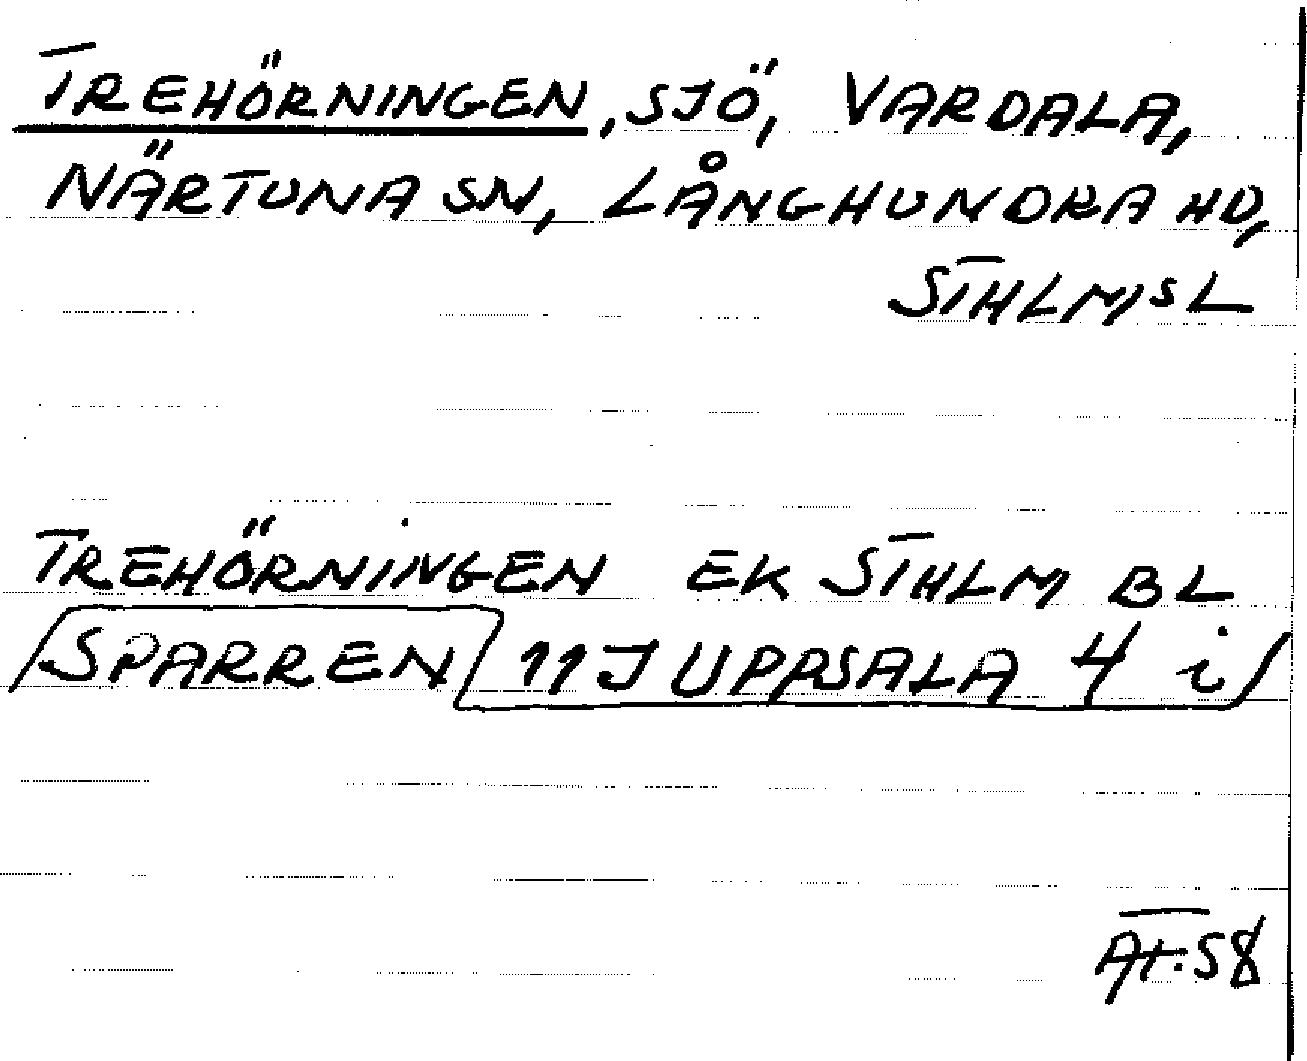 TREHÖRNINGEN, SJÖ, VARDALA,
NÄRTUNA SN, LÅNGHUNDRA HD,
STHLMSL
TREHÖRNINGEN EK STHLM BL
SPARREN 11J UPPSALA 4 i
At. 58